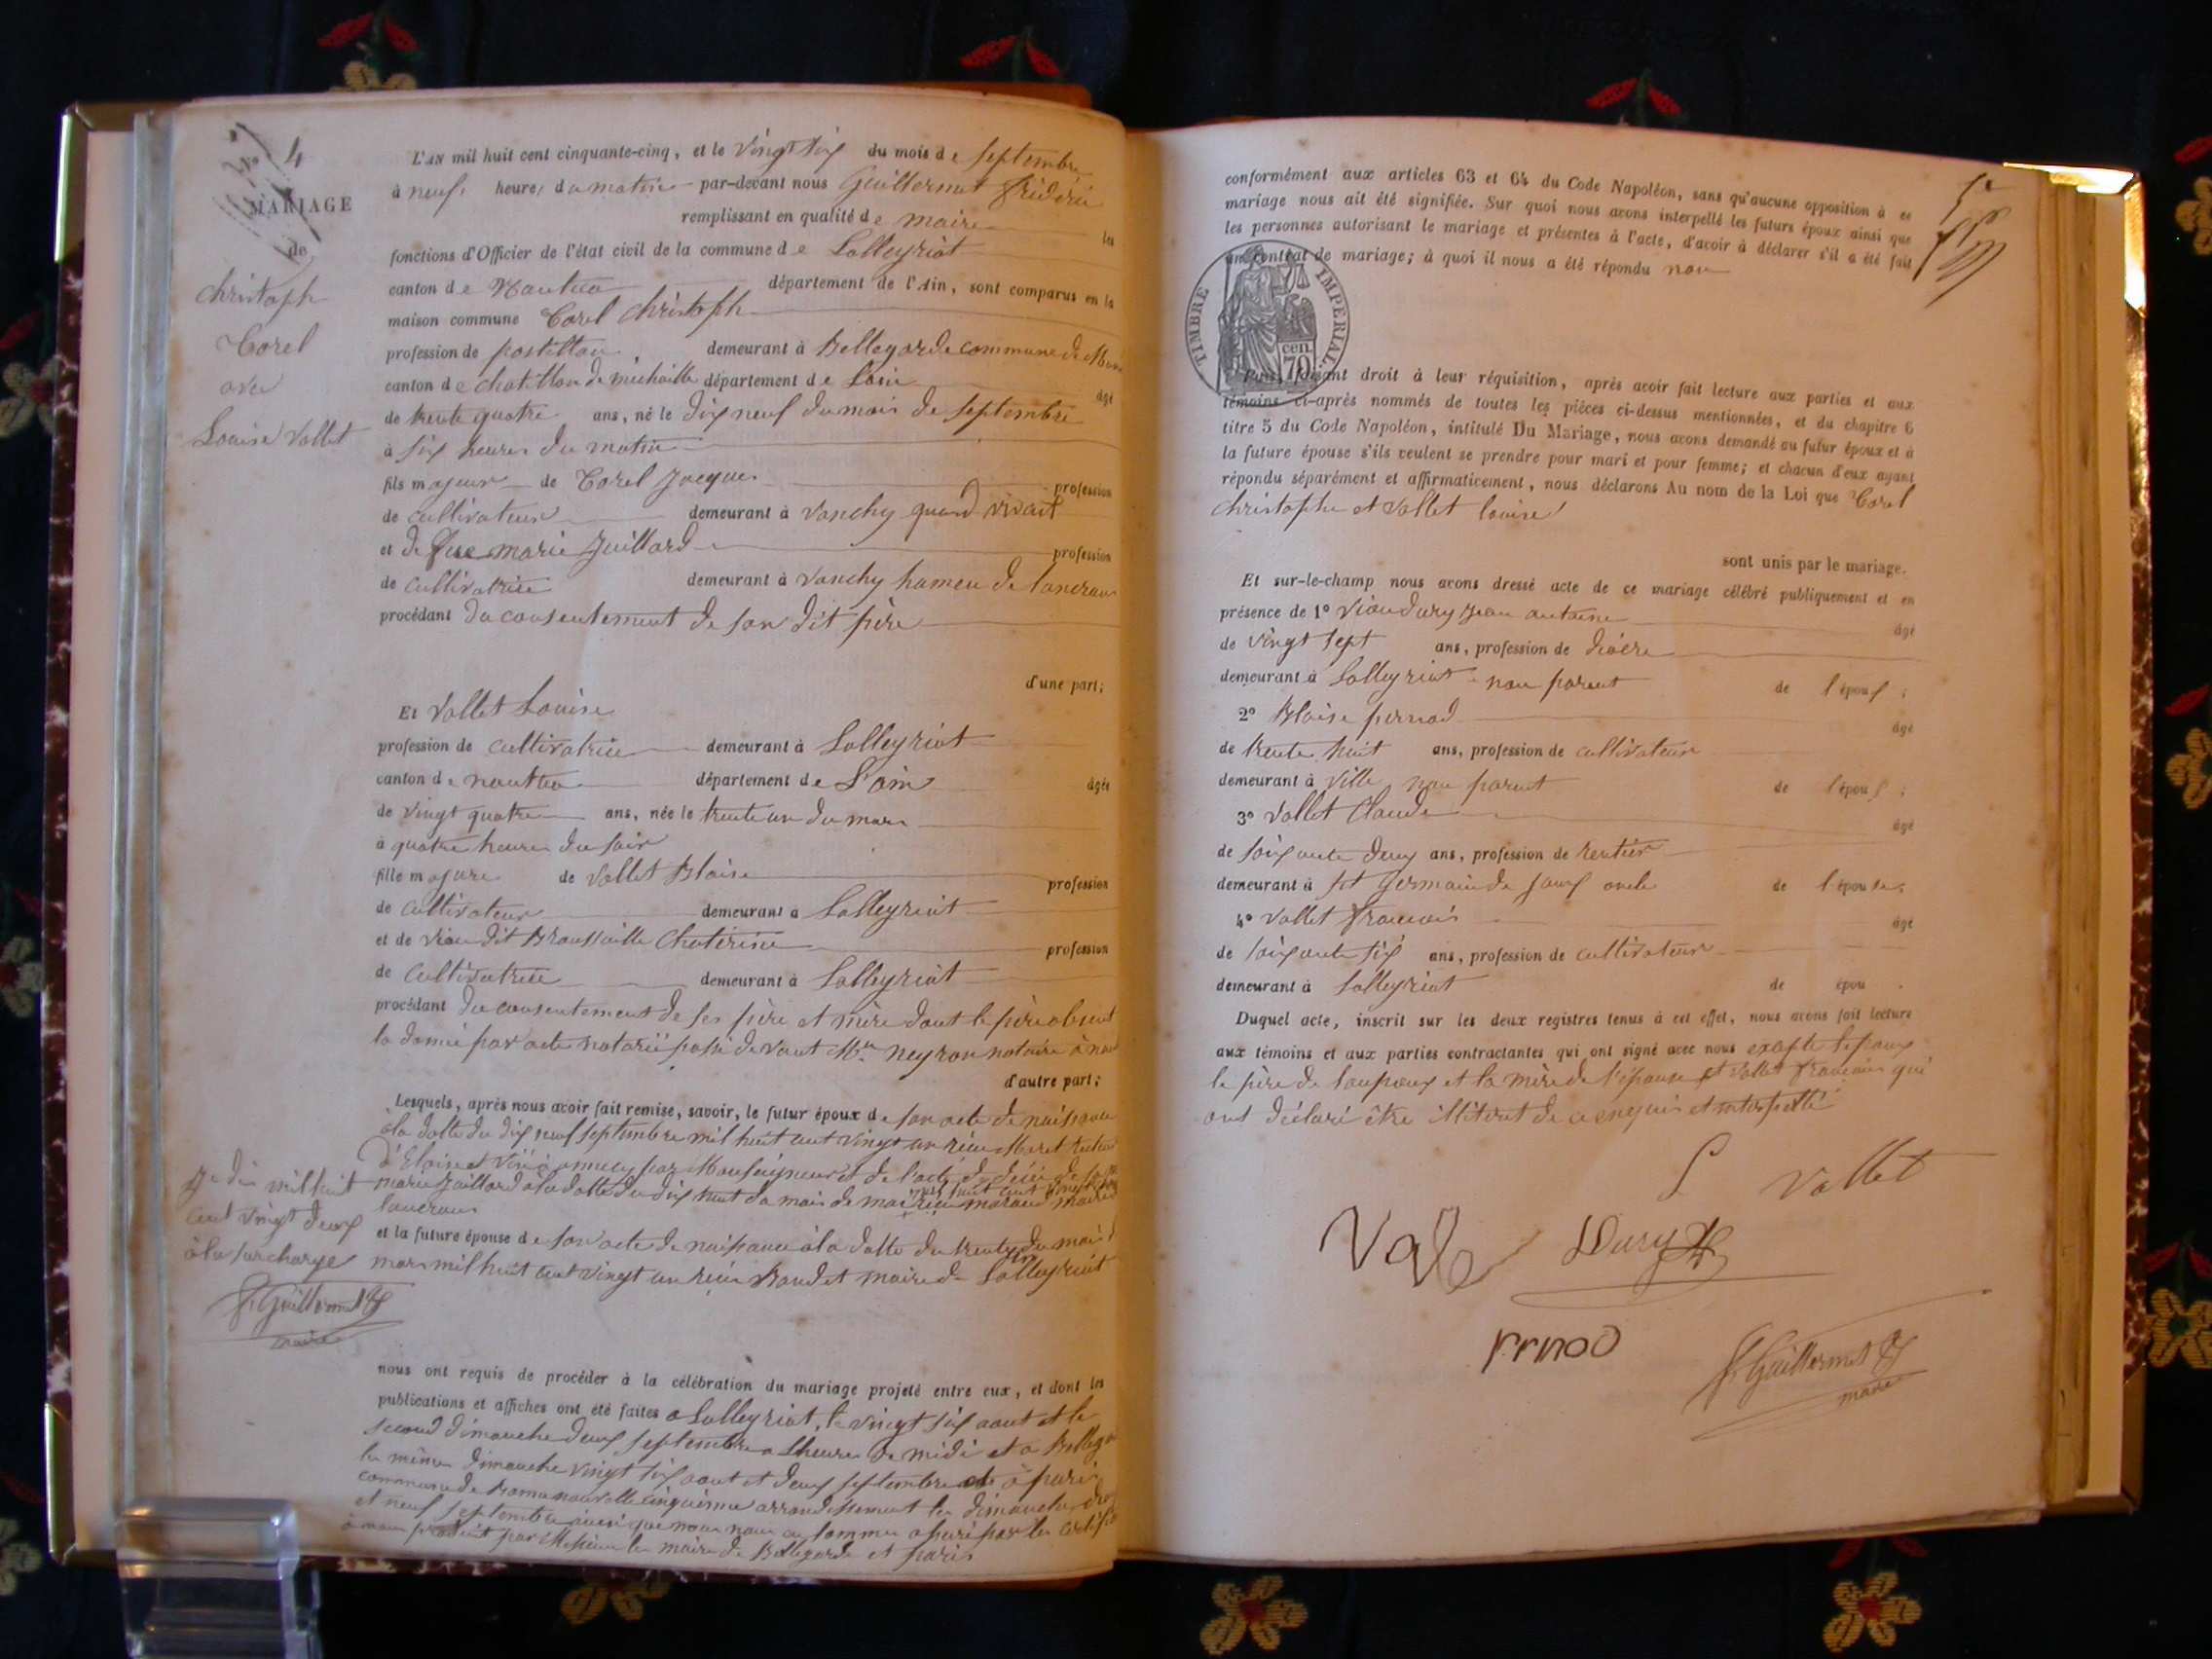 N° 4
MARIAGE
de
Christoph
Corel
avec
Louise Vallet
L'AN mil huit cent cinquante-cinq, et le vingt six du mois de septembre
à neuf heures du matin par-devant nous Guillermet frédéric
remplissant en qualité de maire les
fonctions d'Officier de l'état civil de la commune de Lalleyriat
canton de Nantua département de l'Ain, sont comparus en la
maison commune Corel Christoph
profession de postillon demeurant à Bellegarde commune de
canton de chatillon de michaille département de Lain âgé
de trente quatre ans, né le dix neuf du mois de septembre
à six heures du matin
fils majeur de Corel Jacques profession
de cultivateur demeurant à Vanchy quand vivait
et de marie Juillard profession
de cultivatrice demeurant à Vanchy hameu de lancran
procédant du consentement de son dit père
d'une part;
Et Vallet Louise
profession de cultivatrice demeurant à Lalleyriat
canton de nantua département de L'ain âgée
de vingt quatre ans, née le trente un du mars
à quatre heures du soir
fille majeure de Vallet Blaise profession
de cultivateur demeurant à Lalleyriat
et de Vion dit Broussaille Chaterine profession
de cultivatrice demeurant à Lalleyriat
procédant du consentement de ses père et mère dont le père absent
la donné par acte notarié passé devant Me neyron notaire à
d'autre part;
Lesquels, après nous avoir fait remise, savoir, le futur époux de son acte de naissance
à la datte du dix neuf septembre mil huit cent vingt un
d'Eloise et visé à annecy par Monseigneur et de l'acte de décès de
marie Juillard à la datte du dix huit du mois de mai
lancrans
et la future épouse de son acte de naissance à la datte du trente un du mois
mars mil huit cent vingt un Baudet maire de Lalleyriat
Je dis mil huit
cent vingt deux
à la surcharge
f. Guillermet
maire
nous ont requis de procéder à la célébration du mariage projeté entre eux, et dont les
publications et affiches ont été faites a Lalleyriat, le vingt six aout et le
second dimanche deux septembre a Lheure de midi et a
les mêmes dimanche vingt six aout et deux septembre à paris
commune de cinquième arrondissement les dimanches
et neuf septembre ainsi que nous nous en sommes assuré par les
à nous produit par Messieurs les maires de Bellegarde et paris
conformément aux articles 63 et 64 du Code Napoléon, sans qu'aucune opposition à ce
mariage nous ait été signifiée. Sur quoi nous avons interpellé les futurs époux ainsi que
les personnes autorisant le mariage et présentes à l'acte, d'avoir à déclarer s'il a été fait
un contrat de mariage; à quoi il nous a été répondu non
TIMBRE IMPERIAL
70 cen
Nous, faisant droit à leur réquisition, après avoir fait lecture aux parties et aux
témoins ci-après nommés de toutes les pièces ci-dessus mentionnées, et du chapitre 6
titre 5 du Code Napoléon, intitulé Du Mariage, nous avons demandé au futur époux et à
la future épouse s'ils veulent se prendre pour mari et pour femme; et chacun d'eux ayant
répondu séparément et affirmativement, nous déclarons Au nom de la Loi que Corel
Christophe et Vallet louise
sont unis par le mariage.
Et sur-le-champ nous avons dressé acte de ce mariage célébré publiquement et en
présence de 1° Vion dury Jean antoine âgé
de vingt sept ans, profession de
demeurant à Lalleyriat non parent de l'époux;
2° Blaise pernod âgé
de trente huit ans, profession de cultivateur
demeurant à Ville non parent de l'époux;
3° Vallet Claude âgé
de soixante deux ans, profession de rentier
demeurant à St Germain de Joux oncle de l'épouse;
4° Vallet francois âgé
de soixante six ans, profession de cultivateur
demeurant à Lalleyriat de épou .
Duquel acte, inscrit sur les deux registres tenus à cet effet, nous avons fait lecture
aux témoins et aux parties contractantes qui ont signé avec nous exepte lepoux
le père de loupoux et la mère de l'épouse et Vallet francois qui
ont déclaré être illiterat de ce enquis et interpellé
L Vallet
Vale Dury
prnod
f. Guillermet
maire